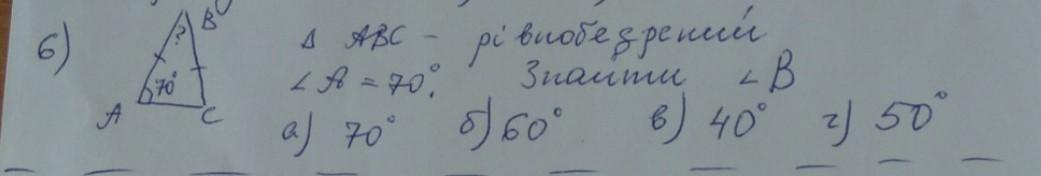 6) B ? 70° A C
Δ ABC - рівнобедрений
∠A = 70°. Знайти ∠B
а) 70° б) 60° в) 40° г) 50°